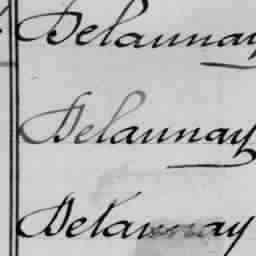 Delaunay
Delaunay
Delaunay